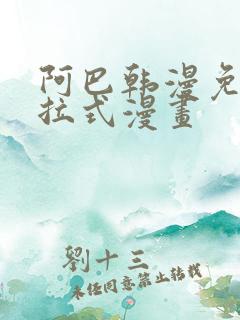 阿巴韩漫免
拉式漫畫
劉十三
未经同意禁止转载